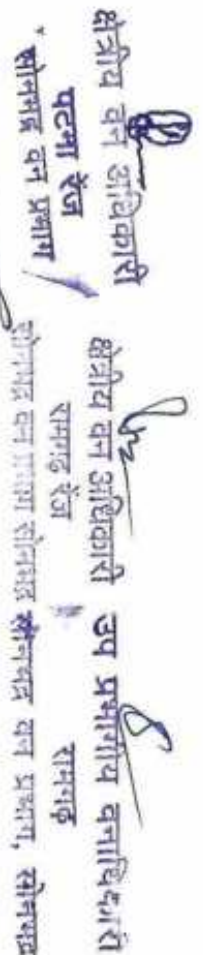 क्षेत्रीय वन अधिकारी
पटना रेंज
सोनभद्र वन प्रभाग
क्षेत्रीय वन अधिकारी
रामगढ़ रेंज
सोनभद्र वन प्रभाग सोनभद्र
उप प्रभागीय वनाधिकारी
रामगढ़
सोनभद्र वन प्रभाग, सोनभद्र